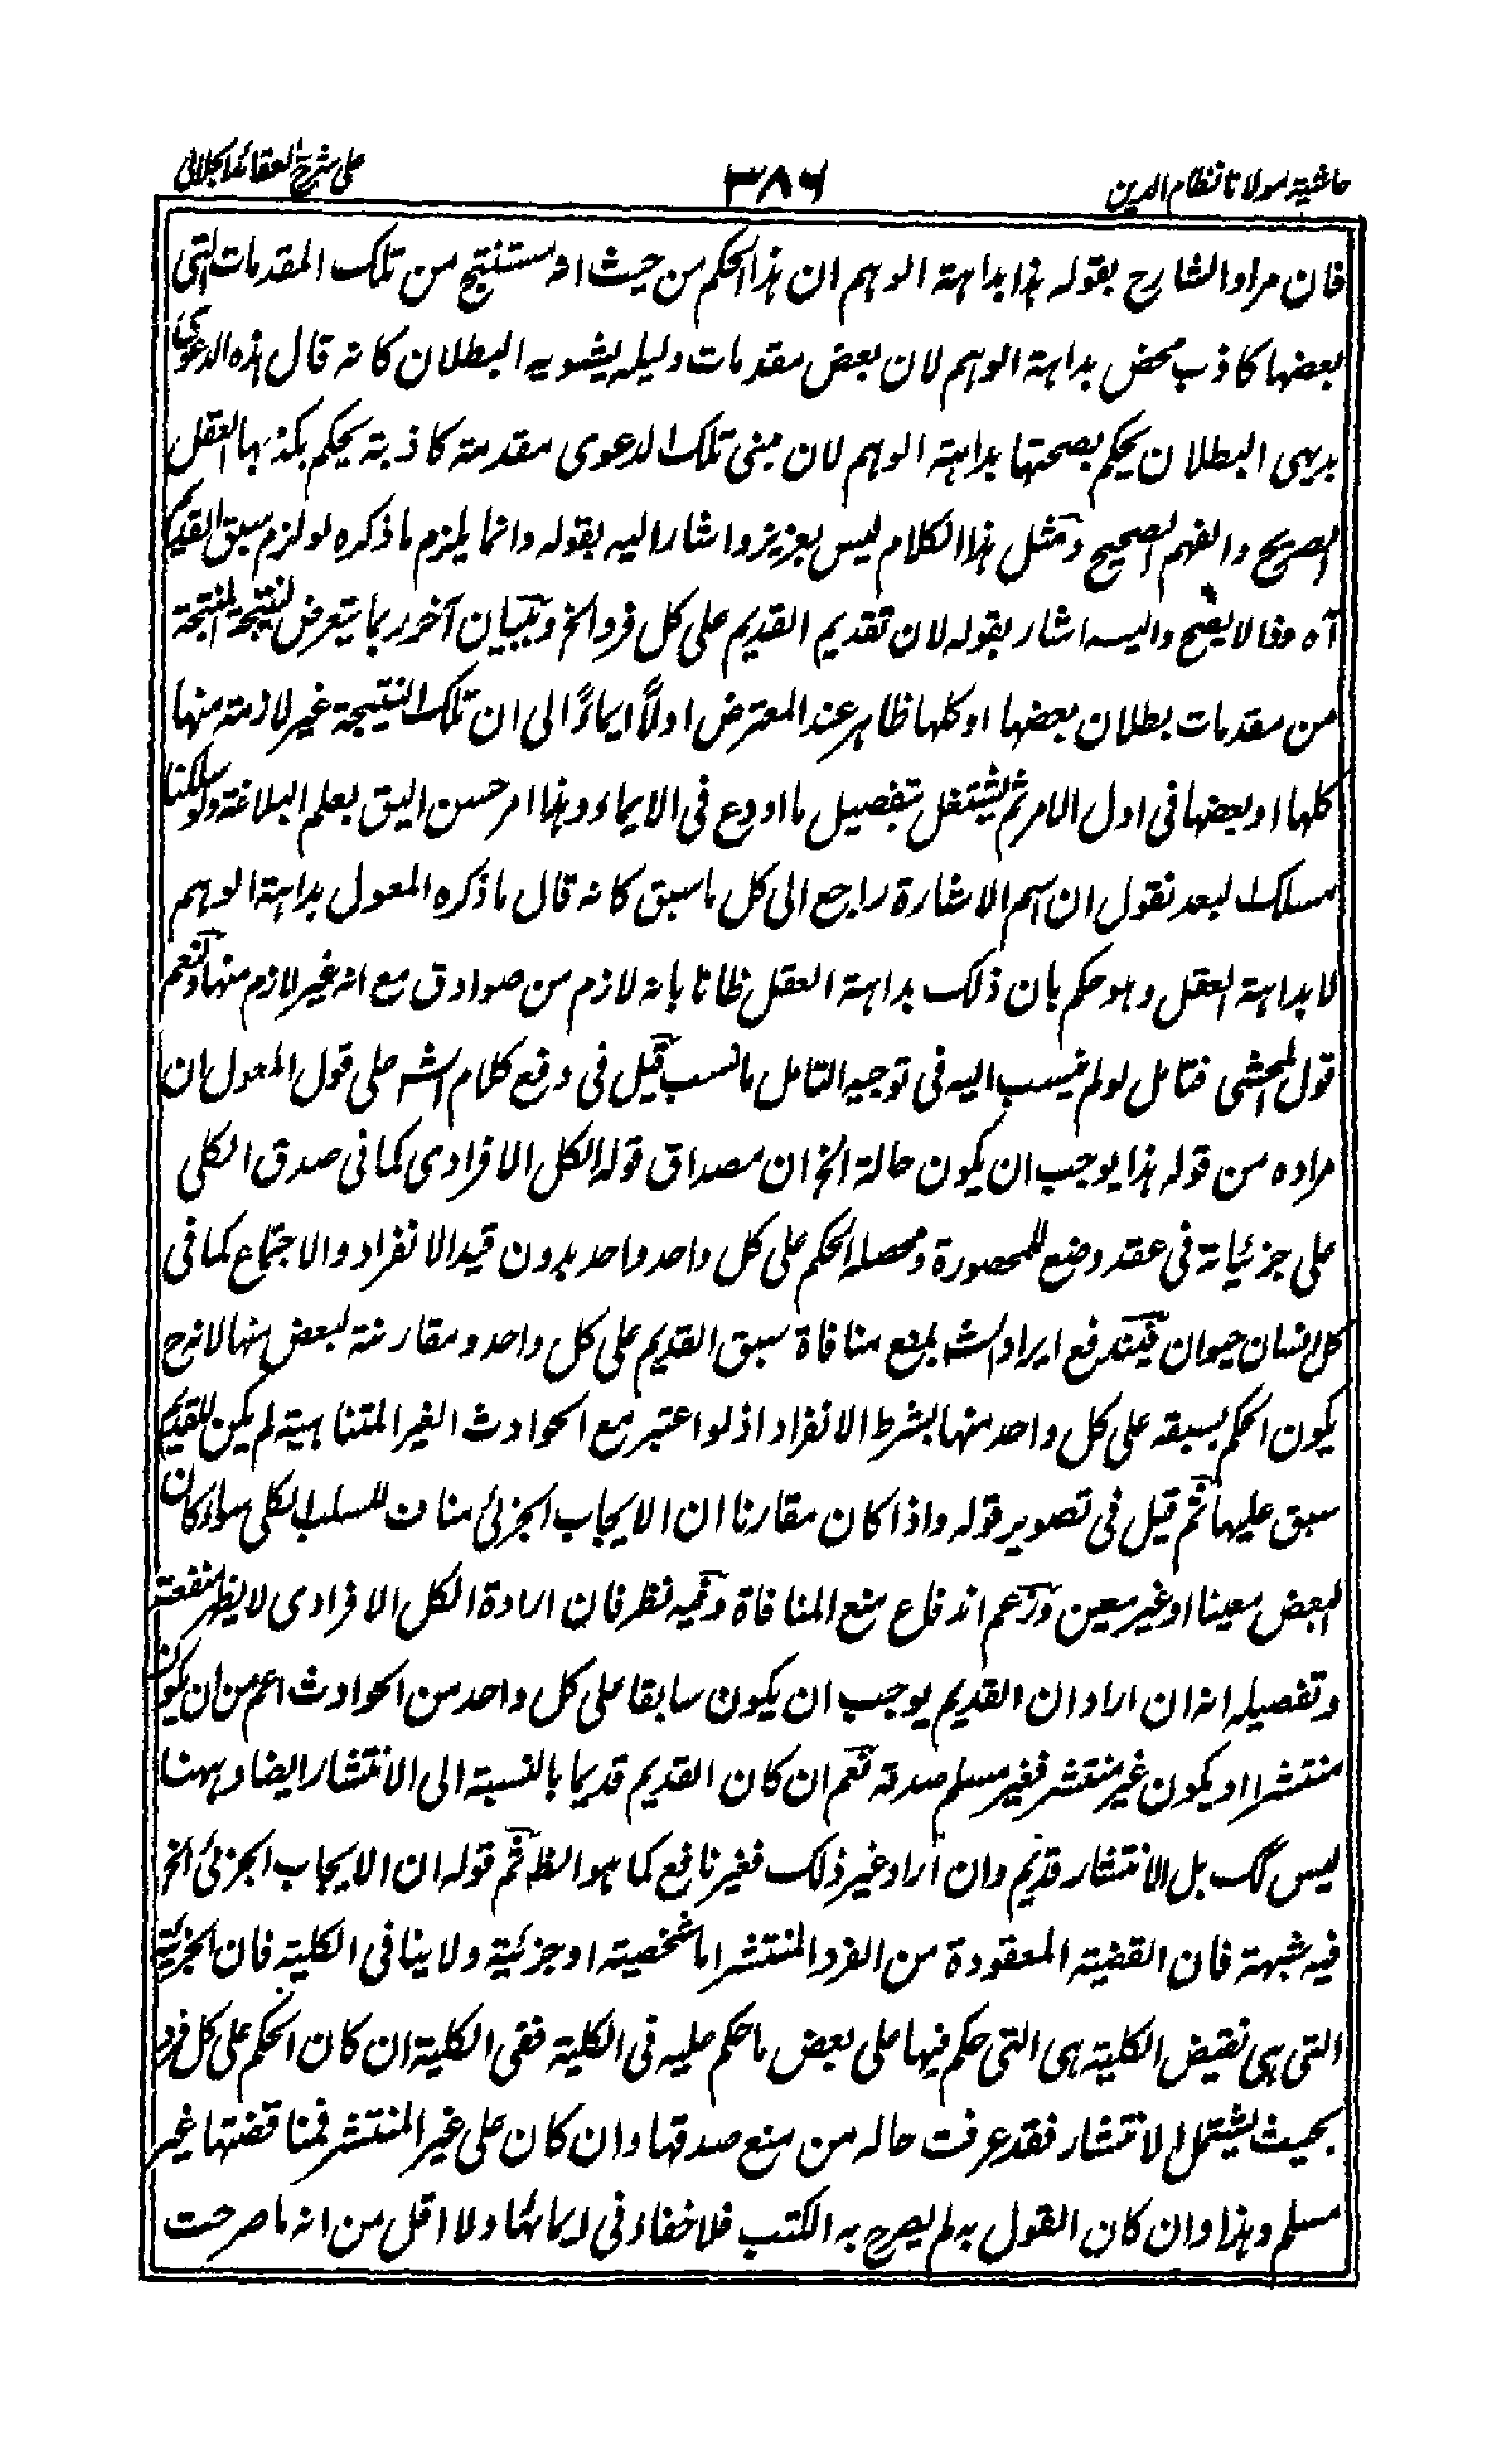 حاشية مولانا نظام الدين
٣٨٦
على شرح العقائد الجلالى
فان مراد الشارح بقوله هذا بداهة الوهم ان هذا الحكم من حيث انه مستنتج من تلك المقدمات التى
بعضها كاذب محض بداهة الوهم لان بعض مقدمات دليله يشوبه البطلان كانه قال هذه الدعوى
بديهى البطلان يحكم بصحتها بداهة الوهم لان مبنى تلك الدعوى مقدمة كاذبة يحكم بكذبها العقل
الصريح والفهم الصحيح ومثل هذا الكلام ليس بعزيز واشار اليه بقوله وانما يلزم ما ذكره لو لزم سبق القديم
آه مفالا يصح واليه اشار بقوله لان تقديم القديم على كل فرد الخ وببيان آخر ربما يتعرض لنتيجة المنتجة
من مقدمات بطلان بعضها او كلها ظاهر عند المعترض اولًا ايماءً الى ان تلك النتيجة غير لازمة منها
كلها او بعضها فى اول الامر ثم يشتغل بتفصيل ما اودع فى الايماء وهذا امر حسن اليق بعلم البلاغة ولو سلكنا
مسلك لبعد نقول ان اسم الاشارة راجع الى كل ما سبق كانه قال ما ذكره المعول بداهة الوهم
لا بداهة العقل وهو حكم بان ذلك بداهة العقل ظانا بانه لازم من صوادق مع انه غير لازم منها ونعم
قول المحشى فتامل لو لم ينسب اليه فى توجيه التامل ما نسب قيل فى دفع كلام الش على قول المعول ان
مراده من قوله هذا يوجب ان يكون حالة الخ ان مصداق قوله الكل الافرادى كما فى صدق الكلى
على جزئياته فى عقد وضع للمحصورة ومحصله الحكم على كل واحد واحد بدون قيد الانفراد والاجتماع كما فى
كل انسان حيوان فيندفع ايراد الش بمنع منافاة سبق القديم على كل واحد ومقارنته لبعض منها لانه ح
يكون الحكم بسبقه على كل واحد منها بشرط الانفراد اذ لو اعتبر مع الحوادث الغير المتناهية لم يكن للقديم
سبق عليها ثم قيل فى تصوير قوله واذا كان مقارنا ان الايجاب الجزئى مناف للسلب الكلى سواء كان
البعض معينا او غير معين وزعم اندفاع منع المنافاة وفيه نظر فان ارادة الكل الافرادى لا يظهر منفعته
وتفصيله انه ان اراد ان القديم يوجب ان يكون سابقا على كل واحد من الحوادث اعم من ان يكون
منتشرا او يكون غير منتشر فغير مسلم صدقه نعم ان كان القديم قديما بالنسبة الى الانتشار ايضا وههنا
ليس كك بل الانتشار قديم وان اراد غير ذلك فغير نافع كما هو الظ ثم قوله ان الايجاب الجزئى الخ
فيه شبهة فان القضية المعقودة من الفرد المنتشر اما شخصية او جزئية ولا ينافى الكلية فان الجزئية
التى هى نقيض الكلية هى التى حكم فيها على بعض ما حكم عليه فى الكلية ففى الكلية ان كان الحكم على كل فرد
بحيث يشتمل الانتشار فقد عرفت حاله من منع صدقها وان كان على غير المنتشر فمناقضتها غير
مسلم وهذا وان كان القول به لم يصرح به الكتب فلا خفاء فى ايمائها ولا اقل من انه ما صرحت